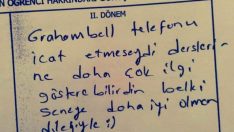 N ÖĞRENCİ HAKKINDAKİ
II. DÖNEM
Grahambell telefonu
icat etmeseydi dersleri-
ne daha çok ilgi
göstere bilirdin belki
Seneye daha iyi olman
dileğiyle :)